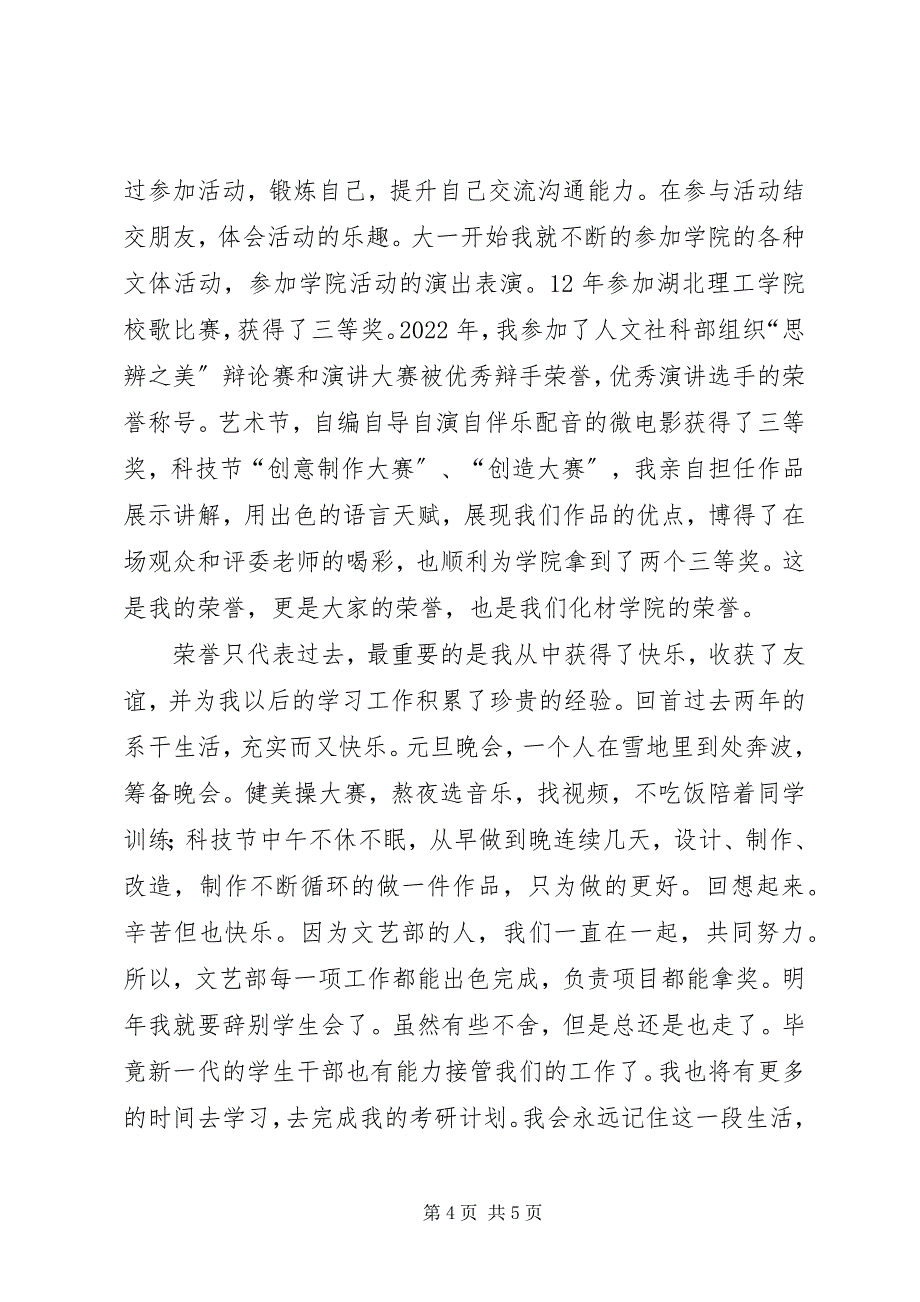 过参加活动，锻炼自己，提升自己交流沟通能力。在参与活动结
交朋友，体会活动的乐趣。大一开始我就不断的参加学院的各种
文体活动，参加学院活动的演出表演。12 年参加湖北理工学院
校歌比赛，获得了三等奖。2022 年，我参加了人文社科部组织“思
辨之美〞辩论赛和演讲大赛被优秀辩手荣誉，优秀演讲选手的荣
誉称号。艺术节，自编自导自演自伴乐配音的微电影获得了三等
奖，科技节“创意制作大赛〞、“创造大赛〞，我亲自担任作品
展示讲解，用出色的语言天赋，展现我们作品的优点，博得了在
场观众和评委老师的喝彩，也顺利为学院拿到了两个三等奖。这
是我的荣誉，更是大家的荣誉，也是我们化材学院的荣誉。
荣誉只代表过去，最重要的是我从中获得了快乐，收获了友
谊，并为我以后的学习工作积累了珍贵的经验。回首过去两年的
系干生活，充实而又快乐。元旦晚会，一个人在雪地里到处奔波，
筹备晚会。健美操大赛，熬夜选音乐，找视频，不吃饭陪着同学
训练；科技节中午不休不眠，从早做到晚连续几天，设计、制作、
改造，制作不断循环的做一件作品，只为做的更好。回想起来。
辛苦但也快乐。因为文艺部的人，我们一直在一起，共同努力。
所以，文艺部每一项工作都能出色完成，负责项目都能拿奖。明
年我就要辞别学生会了。虽然有些不舍，但是总还是也走了。毕
竟新一代的学生干部也有能力接管我们的工作了。我也将有更多
的时间去学习，去完成我的考研计划。我会永远记住这一段生活，
第 4 页 共 5 页